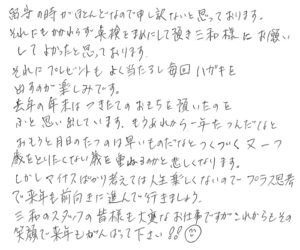 留守の時がほとんどなので申し訳ないと思っております。
それにもかかわらず点検をまめにして頂き三和様にお願い
してよかったと思っております。
それにプレゼントもよく当たるし毎回ハガキを
出すのが楽しみです。
去年の年末はつきたてのおもちを頂いたのを
ふと思い出しています。もうあれから一年たつんだなと
おもうと月日のたつのは早いものだなとつくづく又一つ
歳をとりたくない歳を重ねるのかと悲しくなります。
しかしマイナスばかり考えては人生楽しくないのでプラス思考
で来年も前向きに進んで行きましょう。
三和のスタッフの皆様も大変なお仕事ですがこれからもその
笑顔で来年もがんばって下さい!!